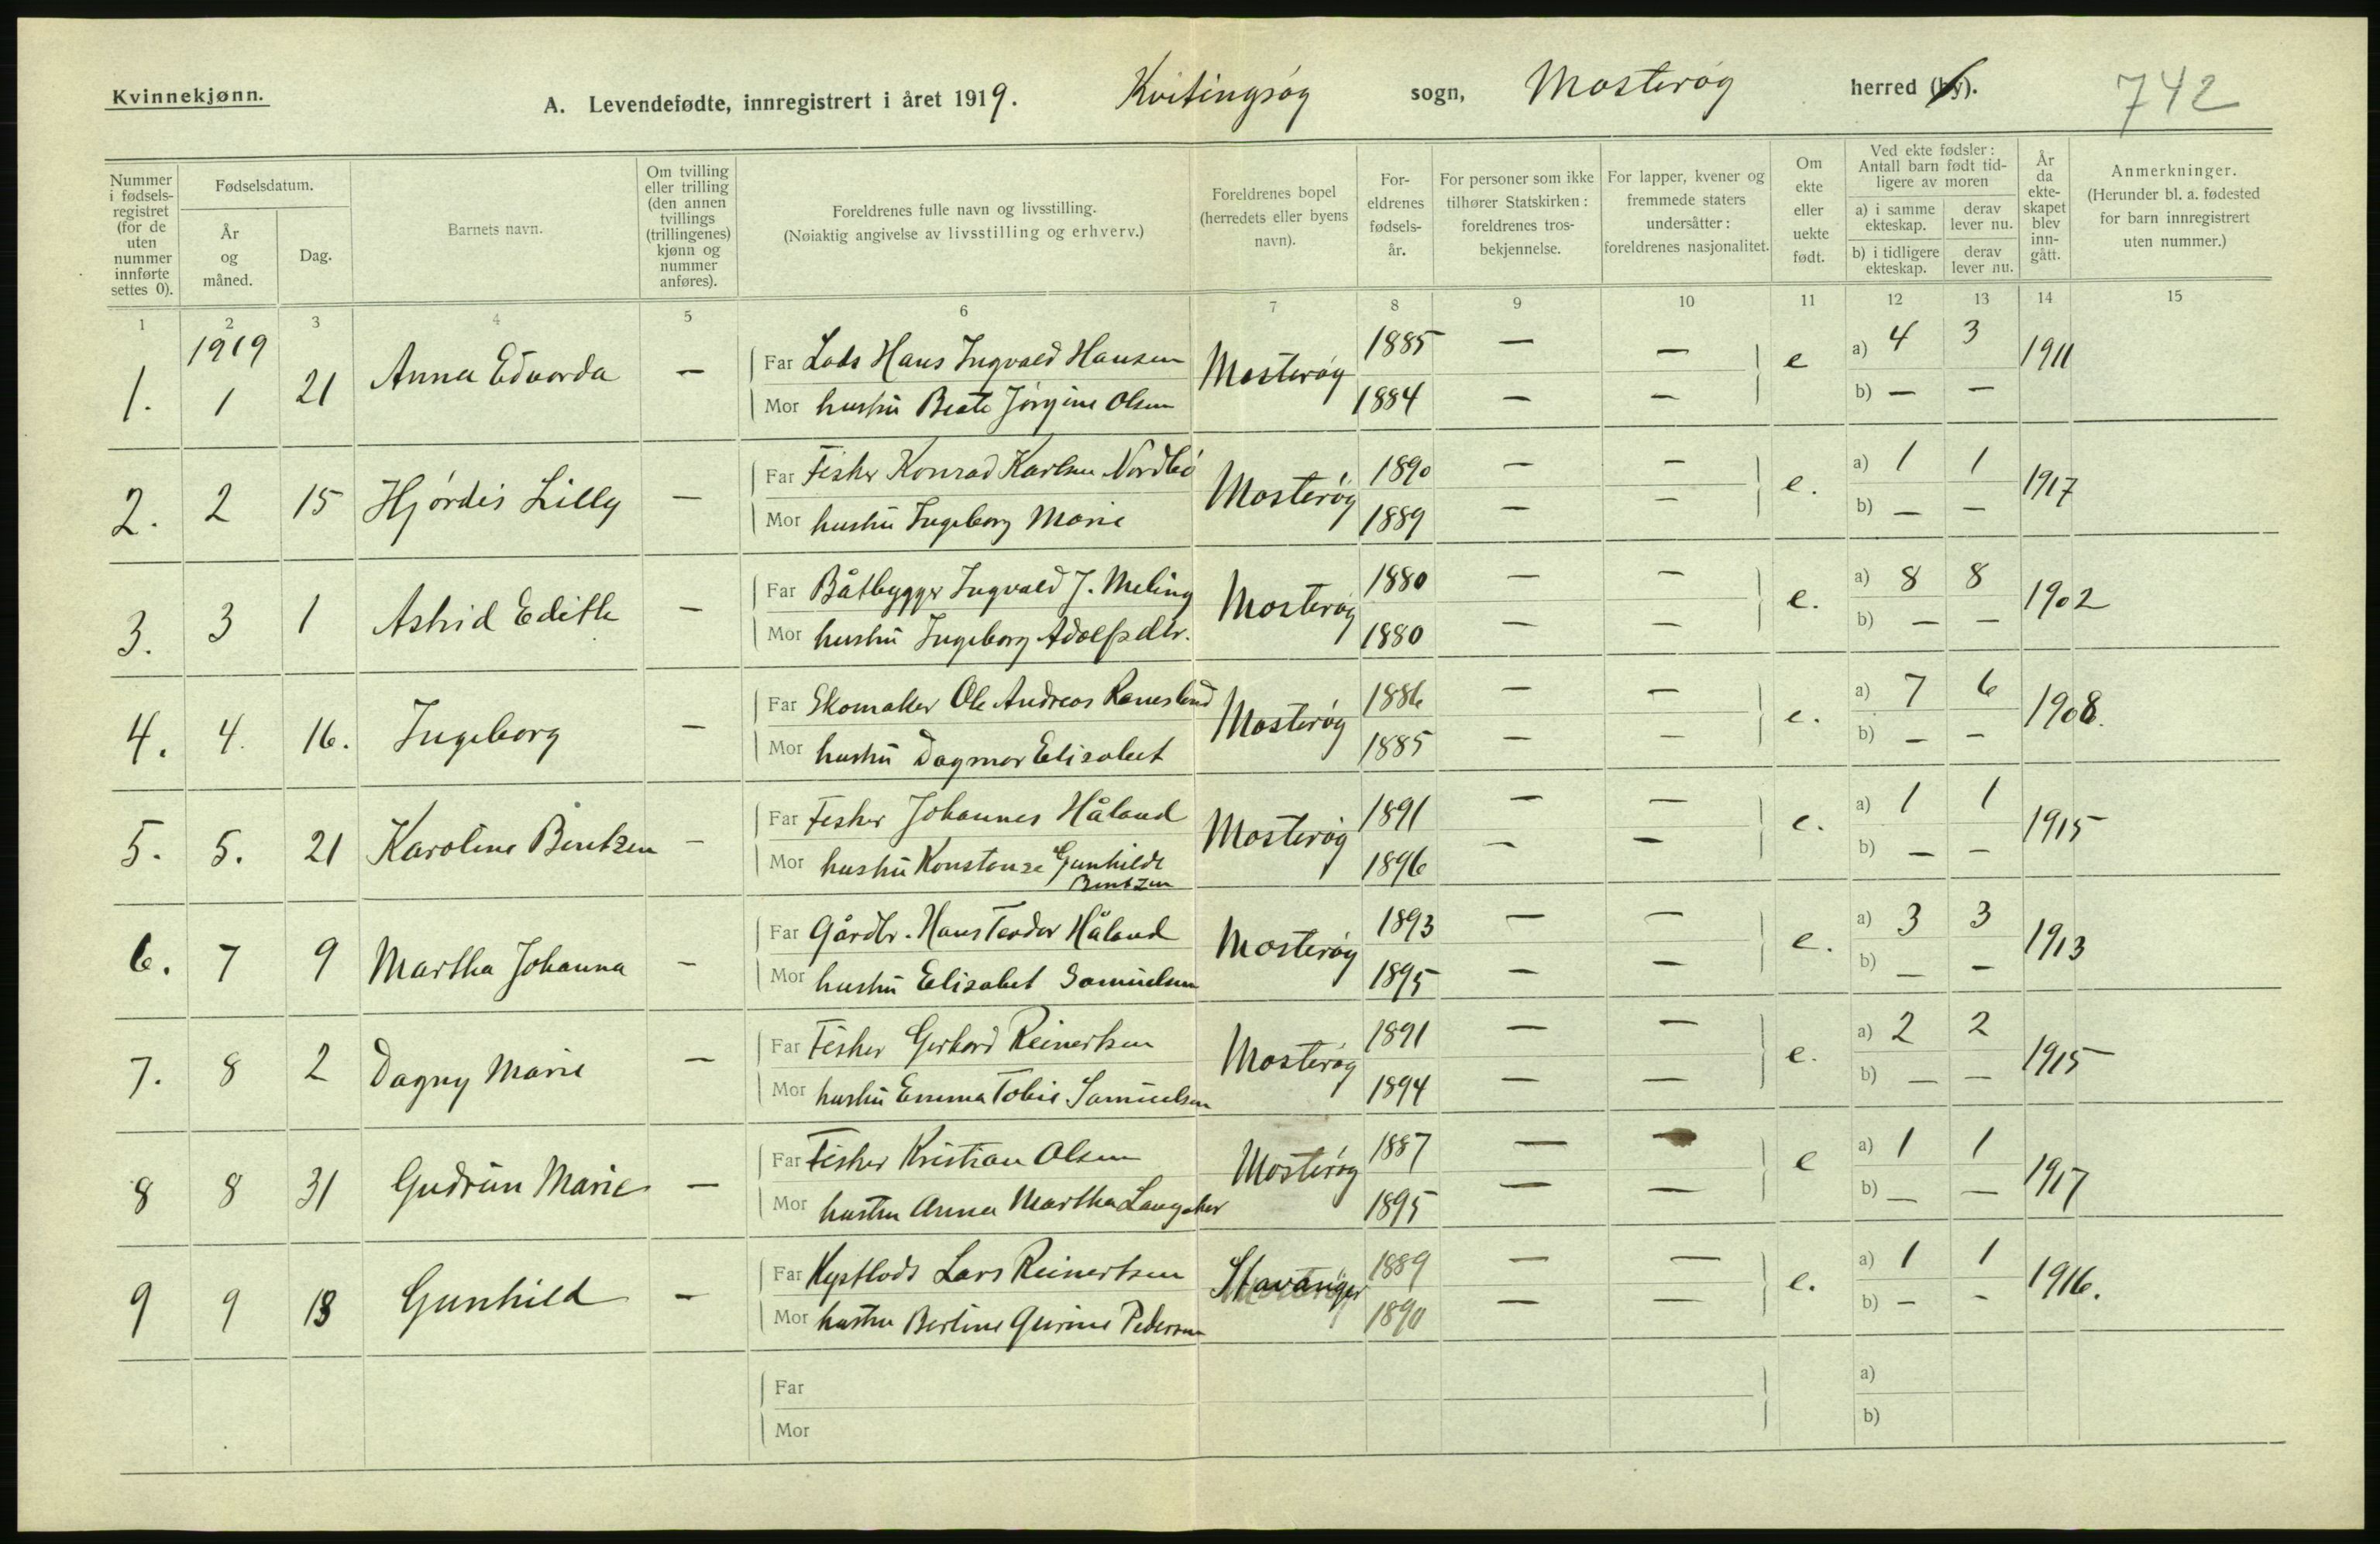 Kvinnekjønn.
A. Levendefødte, innregistrert i året 1919. Kvitingsøy sogn, Mosterøy herred (by). 742
Nummer i fødselsregistret (for de uten nummer innførte settes 0).
Fødselsdatum.
År og måned.
Dag.
Barnets navn.
Om tvilling eller trilling (den annen tvillings (trillingenes) kjønn og nummer anføres).
Foreldrenes fulle navn og livsstilling.
(Nøiaktig angivelse av livsstilling og erhverv.)
Foreldrenes bopel (herredets eller byens navn).
Foreldrenes fødselsår.
For personer som ikke tilhører Statskirken: foreldrenes trosbekjennelse.
For lapper, kvener og fremmede staters undersåtter: foreldrenes nasjonalitet.
Om ekte eller uekte født.
Ved ekte fødsler: Antall barn født tidligere av moren
a) i samme ekteskap. derav lever nu.
b) i tidligere ekteskap. derav lever nu.
År da ekteskapet blev inngått.
Anmerkninger.
(Herunder bl. a. fødested for barn innregistrert uten nummer.)
1 2 3 4 5 6 7 8 9 10 11 12 13 14 15
1919
1. 1 21 Anna Edvarda — Far Lods Hans Ingvald Hansen Mosterøy 1885 — — e a) 4 3 1911
Mor hustru Beate Jørgine Olsen 1884 — — b) — —
2. 2 15 Hjørdis Lilly — Far Fisker Konrad Karlsen Nordbø Mosterøy 1890 — — e. a) 1 1 1917
Mor hustru Ingeborg Marie 1889 — — b) — —
3. 3 1 Astrid Edith — Far Båtbygger Ingvald J. Meling Mosterøy 1880 — — e. a) 8 8 1902
Mor hustru Ingeborg Adolfsdtr. 1880 — — b) — —
4. 4. 16. Ingeborg — Far Skomaker Ole Andreas Ramsland Mosterøy 1886 — — e. a) 7 6 1908.
Mor hustru Dagmar Elisabet 1885 — — b) — —
5. 5. 21 Karoline Bentzen — Far Fisker Johannes Håland Mosterøy 1891 — — e. a) 1 1 1915
Mor hustru Konstanse Gunhilde Bentzen 1896 — — b) — —
6. 7 9 Martha Johanna — Far Gårdbr. Hans Teodor Håland Mosterøy 1893 — — e. a) 3 3 1913
Mor hustru Elisabet Samuelsen 1895 — — b) — —
7. 8 2 Dagny Marie — Far Fisker Gerhard Reinertsen Mosterøy 1891 — — e. a) 2 2 1915
Mor hustru Emma Tobie Samuelsen 1894 — — b) — —
8 8 31 Gudrun Marie — Far Fisker Kristian Olsen Mosterøy 1887 — — e a) 1 1 1917
Mor hustru Anna Martha Langaker 1895 — — b) — —
9 9 13 Gunhild — Far Kystlods Lars Reinertsen Stavanger 1889 — — e. a) 1 1 1916.
Mor hustru Bertine Gurine Pedersen 1890 — — b) — —
Far a)
Mor b)